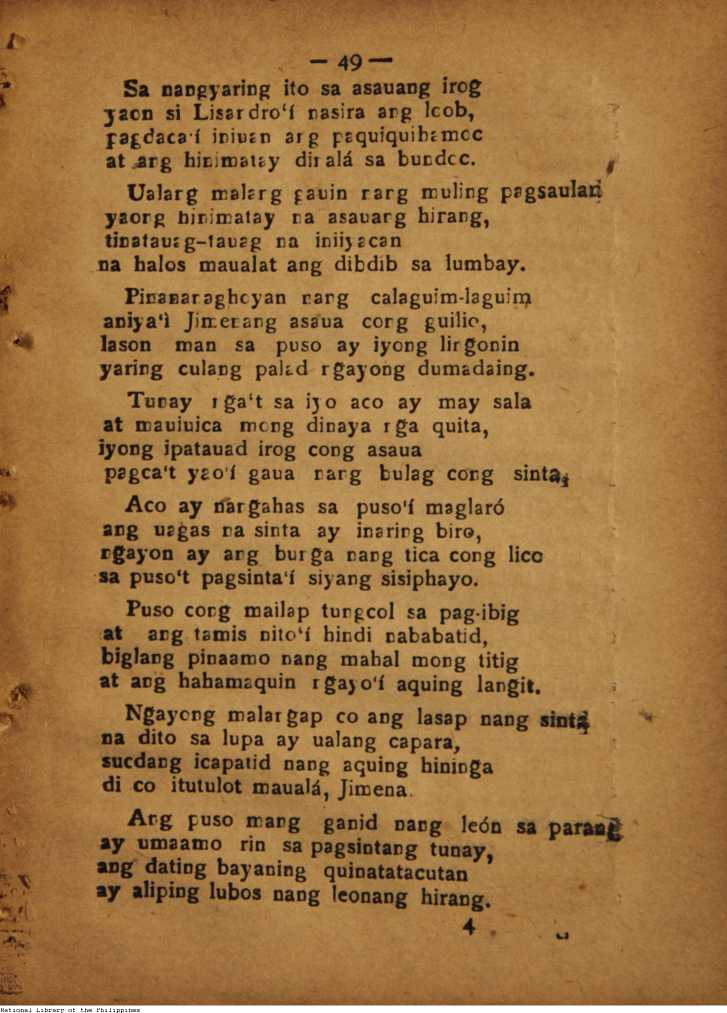 — 49 —
Sa nangyaring ito sa asauang irog
yaon si Lisardro'í nasira ang loob,
pagdaca'í iniuan ang paquiquihamoc
at ang hinimatay din alá sa bundoc.
Ualang malang gauin nang muling pagsaulan
yaong hinimatay na asauang hirang,
tinatauag-tauag na iniiyacan
na halos maualat ang dibdib sa lumbay.
Pinanaraghoyan nang calaguim-laguim
aniya'ì Jimenang asaua cong guilio,
lason man sa puso ay iyong lingonin
yaring culang palad ngayong dumadaing.
Tunay nga't sa iyo aco ay may sala
at mauiuica mong dinaya nga quita,
iyong ipatauad irog cong asaua
pagca't yao'í gaua nang bulag cong sinta,
Aco ay nangahas sa puso'í maglaró
ang uagas na sinta ay inaring biro,
ngayon ay ang bunga nang tica cong lico
sa puso't pagsinta'í siyang sisiphayo.
Puso cong mailap tungcol sa pag-ibig
at ang tamis nito'í hindi nababatid,
biglang pinaamo nang mahal mong titig
at ang hahamaquin ngayo'í aquing langit.
Ngayong malangap co ang lasap nang sinta
na dito sa lupa ay ualang capara,
sucdang icapatid nang aquing hininga
di co itutulot maualá, Jimena.
Ang puso mang ganid nang león sa parang
ay umaamo rin sa pagsintang tunay,
ang dating bayaning quinatatacutan
ay aliping lubos nang leonang hirang.
4
National Library of the Philippines